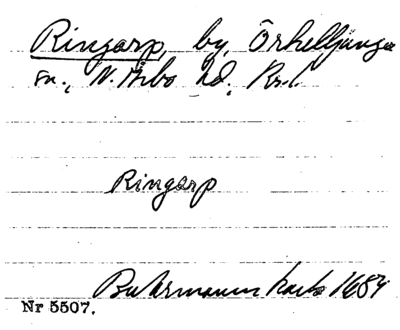 Ringarp, by, Örkelljunga
sn., N. Åsbo hd., Kr.l.
Ringarp
Buhrmanns karta 1684
Nr 5507.